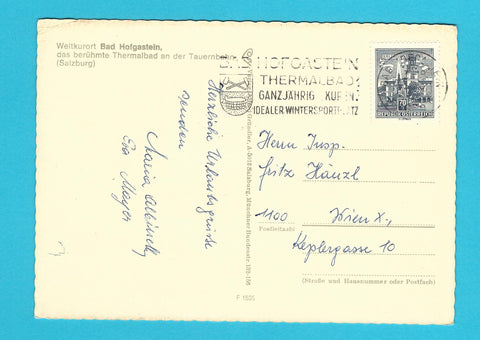 Weltkurort Bad Hofgastein,
das berühmte Thermalbad an der Tauernbahn
(Salzburg)
BAD HOFGASTEIN
THERMALBAD
GANZJÄHRIG KUREN
IDEALER WINTERSPORTPLATZ
70
REPUBLIK ÖSTERREICH
Herzliche Urlaubsgrüsse
senden
Maria
Eva Mayer
Herrn Insp.
Fritz Hanzl
1100 Wien X.,
Postleitzahl
Keplergasse 10
(Straße und Hausnummer oder Postfach)
Salzburg, Münchner Bundesstr.
F 1505